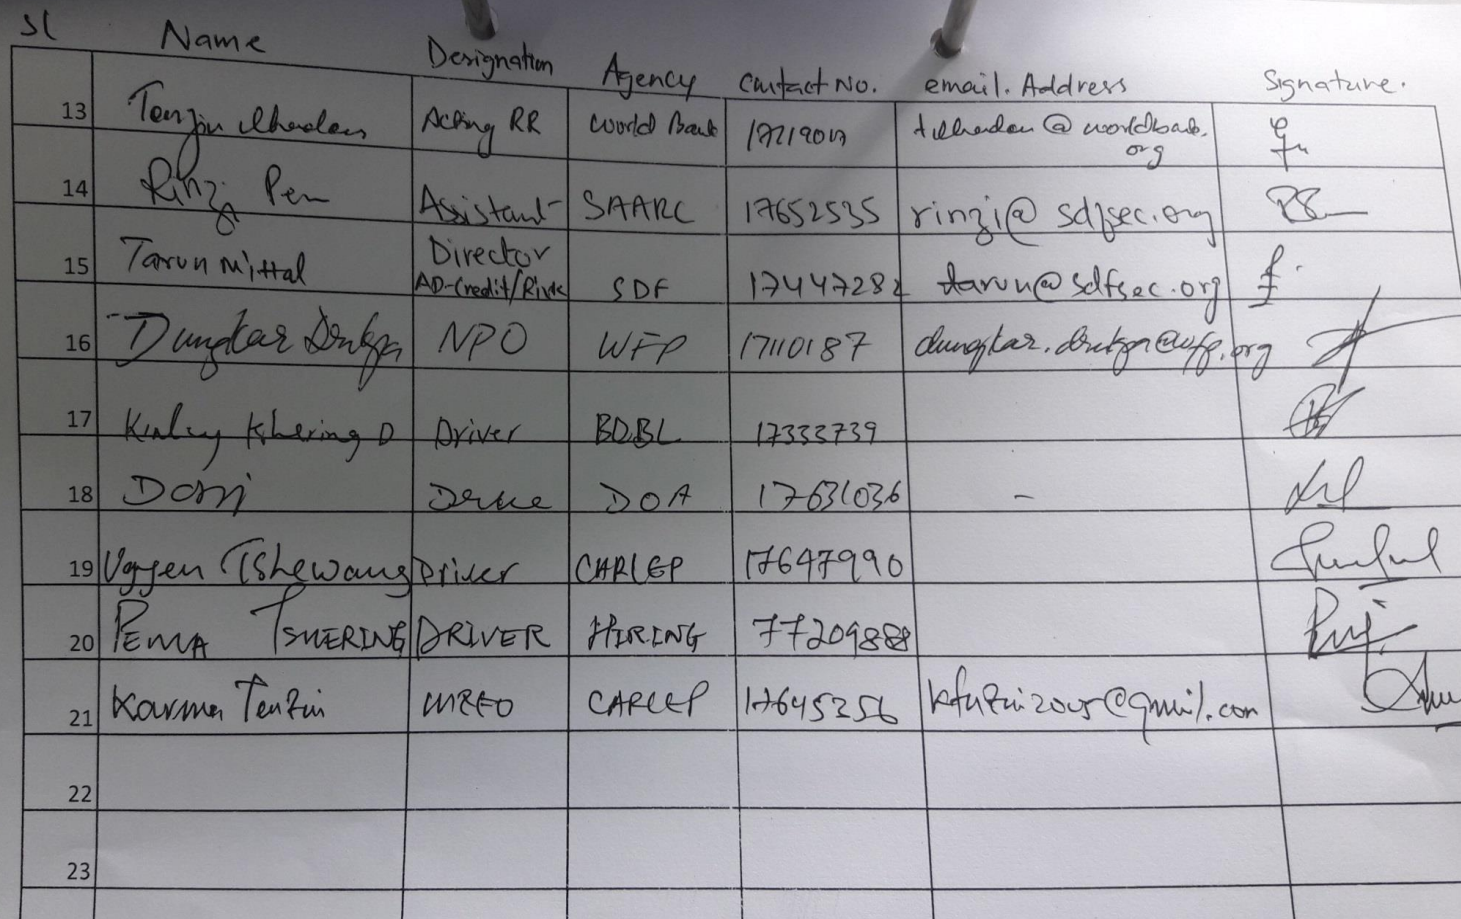 Sl Name Designation Agency Contact No. email. Address Signature.
13 Tenzin Lhaden Acting RR World Bank @worldbank.
org
14 Rinzi Pem Assistant SAARC 17652535 rinzi@sdfsec.org
Director
15 Tarun Mittal AD-Credit/Risk SDF 17447282 tarun@sdfsec.org
16 Dungkar Drukpa NPO WFP 17110187 dungkar.drukpa@wfp.org
17 Kinley Tshering D Driver BDBL 17333739
18 Dorji DOA 17631036 -
19 Ugyen Tshewang Driver CARLEP 17647990
20 PEMA TSHERING DRIVER HIRING 77209888
21 Karma Tenzin CARLEP 17645356
22
23